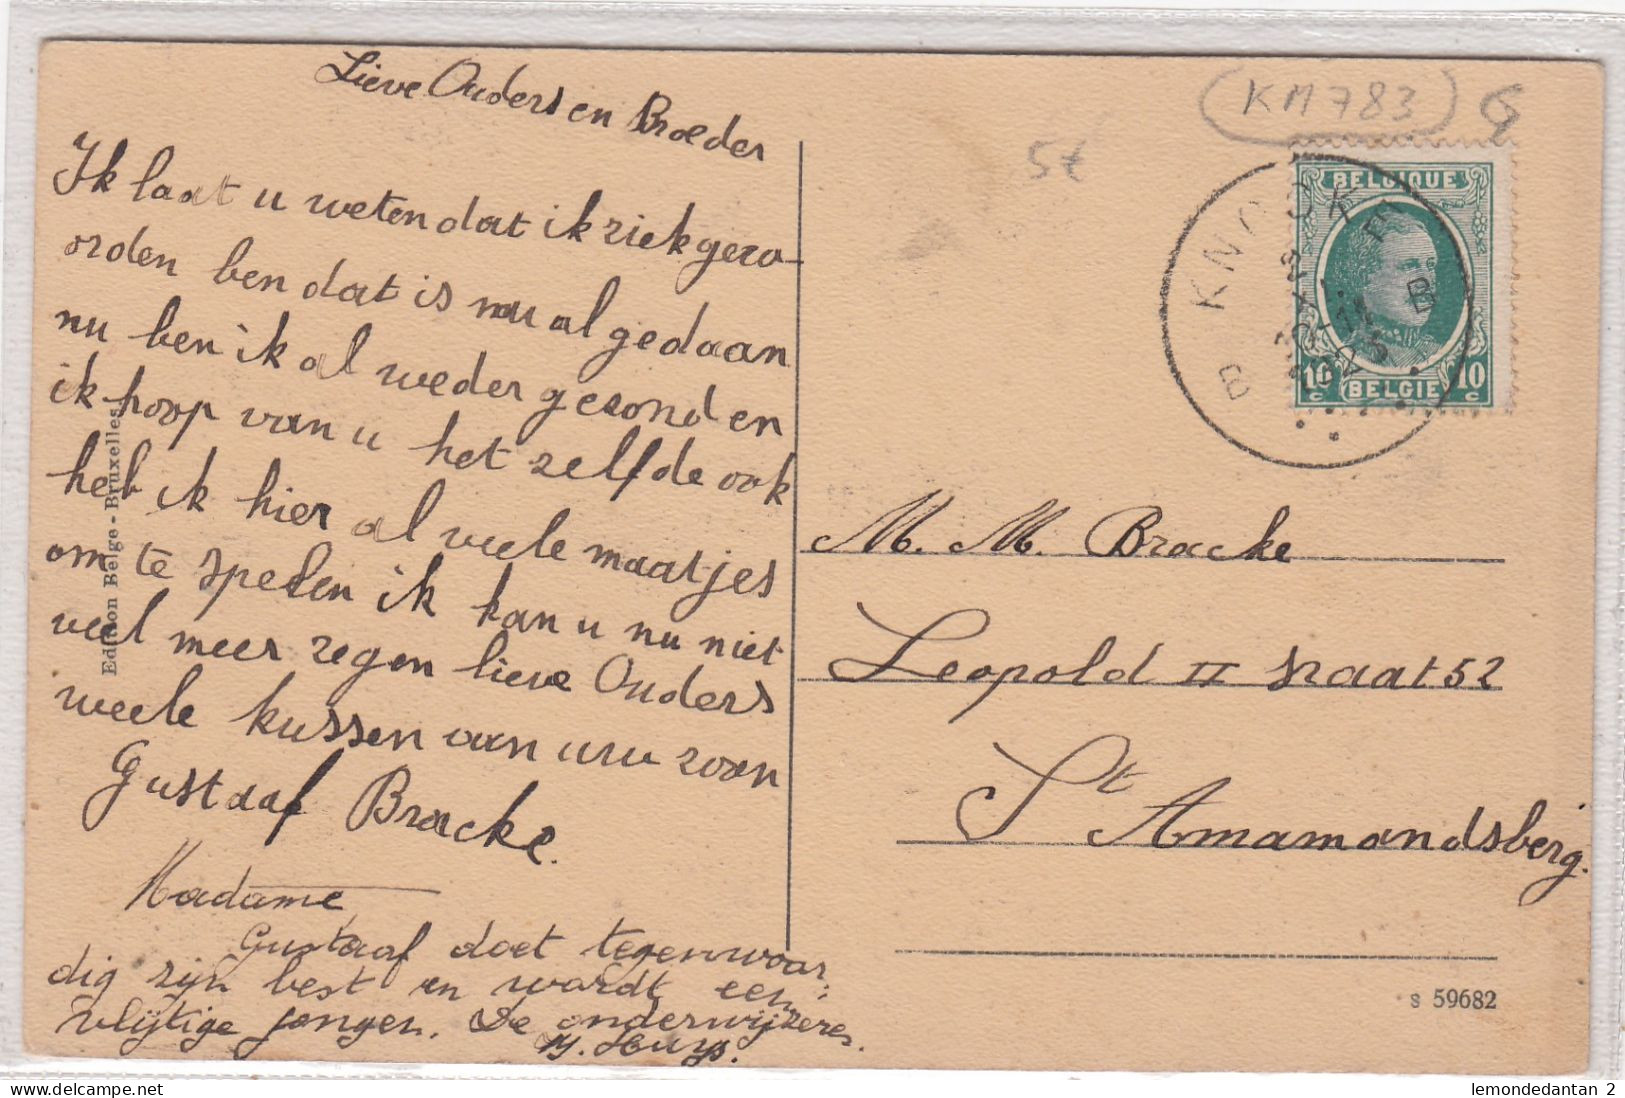 Lieve Ouders en Broeder
Ik laat u weten dat ik ziek gewo-
orden ben dat is nu al gedaan
nu ben ik al weder gesond en
ik hoop van u het zelfde ook
heb ik hier al veele maatjes
om te spelen ik kan u nu niet
veel meer zegen lieve Ouders
veele kussen van uw zoon
Gustaaf Bracke.
Madame
Gustaaf doet tegenwoor
dig zijn best en wordt een
vlijtige jongen. De onderwijzeres.
M. Huys.
Edition Belge - Bruxelles
KM 783
5€
BELGIQUE
10 c BELGIE 10 c
B KNOCKE B
10-11
1925
M. M. Bracke
Leopold II straat 52
St Amamandsberg.
S 59682
delcampe.net
lemondedantan 2